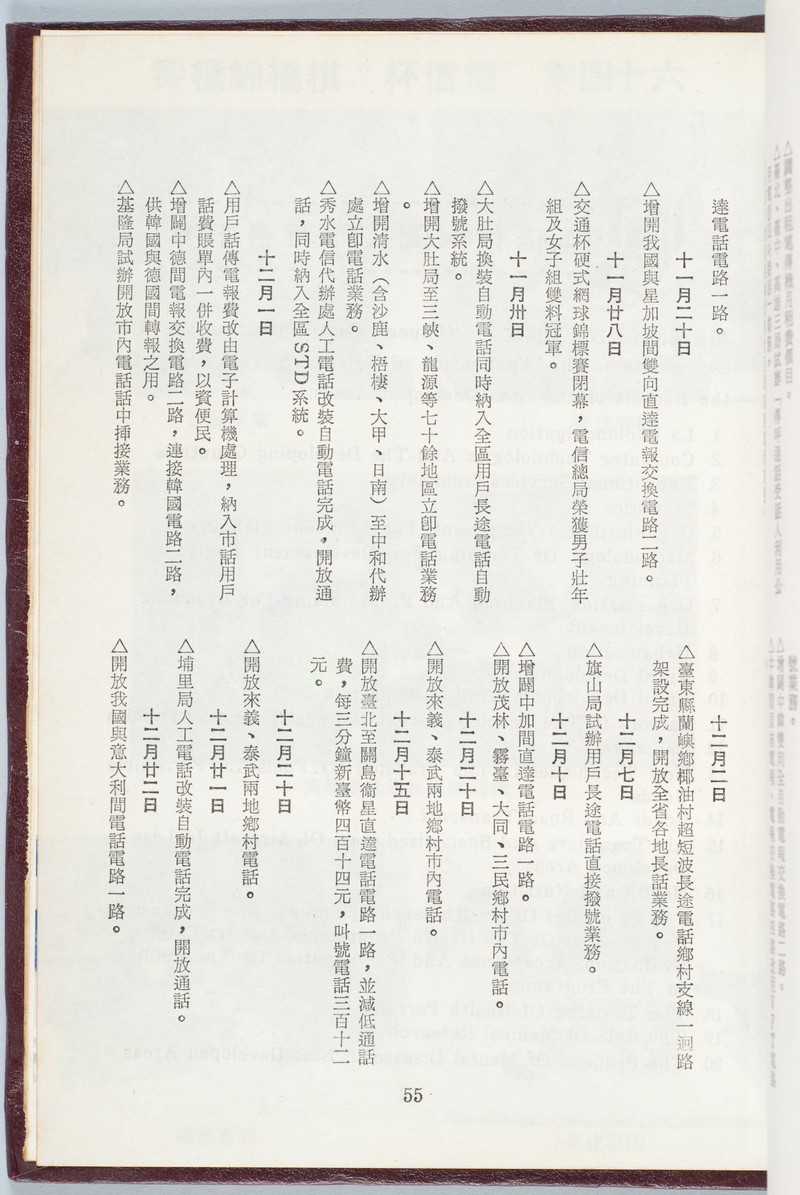 達電話電路一路。
十一月二十日
△增開我國與星加坡間雙向直達電報交換電路二路。
十一月廿八日
△交通杯硬式網球錦標賽閉幕，電信總局榮獲男子壯年
組及女子組雙料冠軍。
十一月卅日
△大肚局換裝自動電話同時納入全區用戶長途電話自動
撥號系統。
△增開大肚局至三峽、龍源等七十餘地區立卽電話業務
。
△增開淸水（含沙鹿、梧棲、大甲、日南）至中和代辦
處立卽電話業務。
△秀水電信代辦處人工電話改裝自動電話完成，開放通
話，同時納入全區STD系統。
十二月一日
△用戶話傳電報費改由電子計算機處理，納入市話用戶
話費賬單內一併收費，以資便民。
△增闢中德間電報交換電路二路，連接韓國電路二路，
供韓國與德國間轉報之用。
△基隆局試辦開放市內電話話中揷接業務。
十二月二日
△臺東縣蘭嶼鄉椰油村超短波長途電話鄉村支線一迴路
架設完成，開放全省各地長話業務。
十二月七日
△旗山局試辦用戶長途電話直接撥號業務。
十二月十日
△增闢中加間直達電話電路一路。
△開放茂林、霧臺、大同、三民鄉村市內電話。
十二月二十日
△開放來義、泰武兩地鄉村市內電話。
十二月十五日
△開放臺北至關島衞星直達電話電路一路，並減低通話
費，每三分鐘新臺幣四百十四元，叫號電話三百十二
元。
十二月二十日
△開放來義、泰武兩地鄉村電話。
十二月廿一日
△埔里局人工電話改裝自動電話完成，開放通話。
十二月廿二日
△開放我國與意大利間電話電路一路。
55